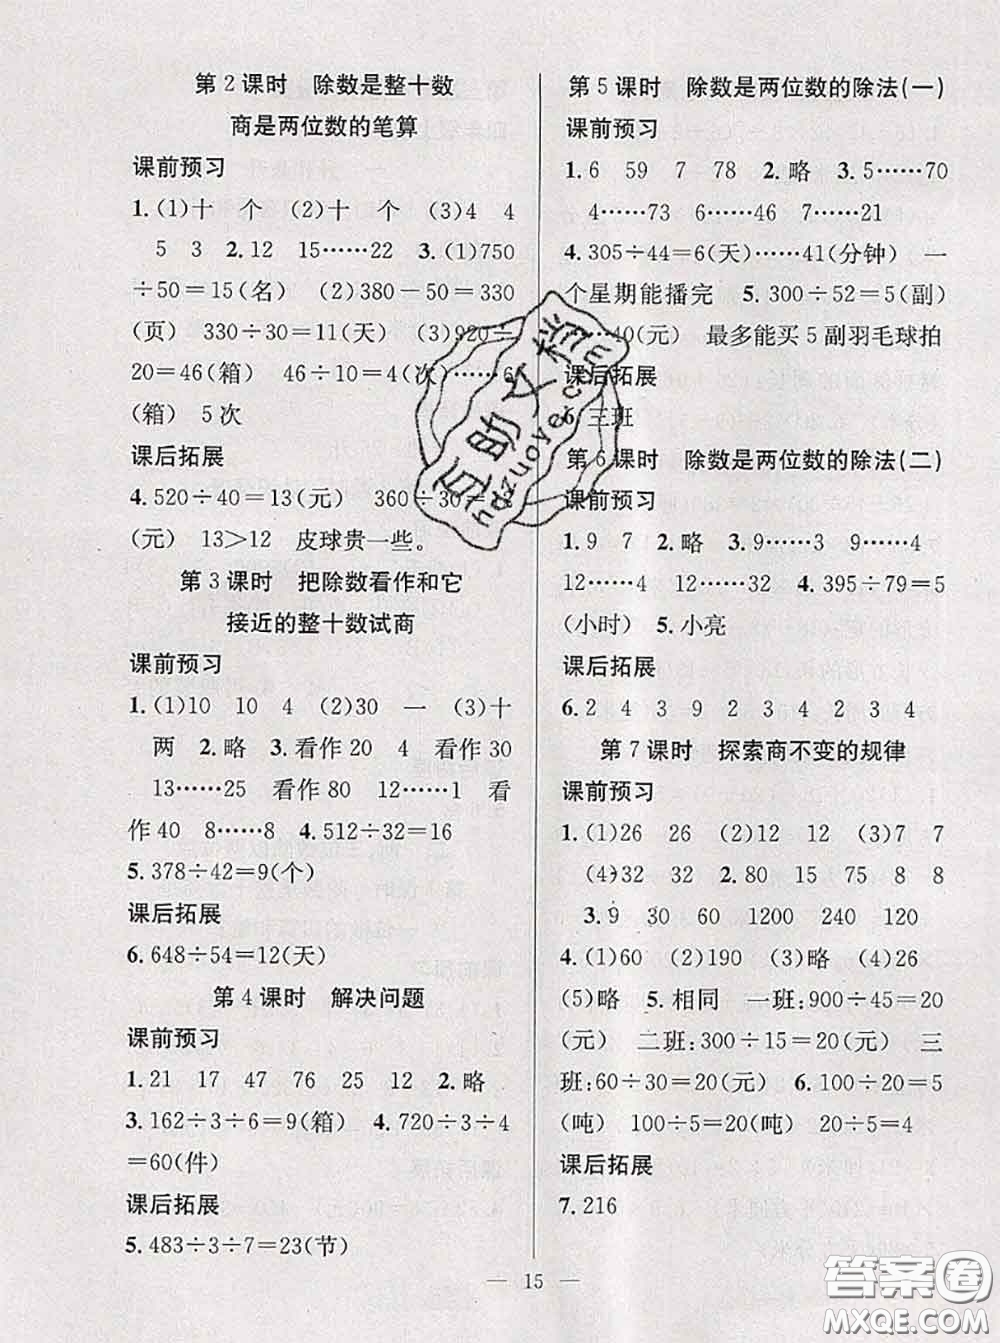 第2课时　除数是整十数
商是两位数的笔算
课前预习
1.(1)十　个　(2)十　个　(3)4　4
5　3　2.12　15……22　3.(1)750
÷50=15(名)　(2)380-50=330
(页)　330÷30=11(天)　(3)920÷
20=46(箱)　46÷10=4(次)……6
(箱)　5次
课后拓展
4.520÷40=13(元)　360÷30=12
(元)　13>12　皮球贵一些。
第3课时　把除数看作和它
接近的整十数试商
课前预习
1.(1)10　10　4　(2)30　一　(3)十
两　2.略　3.看作20　4　看作30
13……25　看作80　12……1　看
作40　8……8　4.512÷32=16
5.378÷42=9(个)
课后拓展
6.648÷54=12(天)
第4课时　解决问题
课前预习
1.21　17　47　76　25　12　2.略
3.162÷3÷6=9(箱)　4.720÷3÷4
=60(件)
课后拓展
5.483÷3÷7=23(节)
第5课时　除数是两位数的除法(一)
课前预习
1.6　59　7　78　2.略　3.5……70
4……73　6……46　7……21
4.305÷44=6(天)……41(分钟)　一
个星期能播完　5.300÷52=5(副)
……40(元)　最多能买5副羽毛球拍
课后拓展
6.三班
第6课时　除数是两位数的除法(二)
课前预习
1.9　7　2.略　3.9……3　9……4
12……4　12……22　4.395÷79=5
(小时)　5.小亮
课后拓展
6.2　4　3　9　2　3　4　2　3　4
第7课时　探索商不变的规律
课前预习
1.(1)26　26　(2)12　12　(3)7　7
(4)32　32　2.80　15　75　8　8
3.9　30　60　1200　240　120
4.(1)60　(2)190　(3)略　(4)26
(5)略　5.相同　一班:900÷45=20
(元)　二班:300÷15=20(元)　三
班:60÷30=20(元)　6.100÷20=5
(吨)　100÷5=20(吨)　20÷5=4
课后拓展
7.216
— 15 —
互助文档
hdzuoye.com
答案圈
MXQE.COM